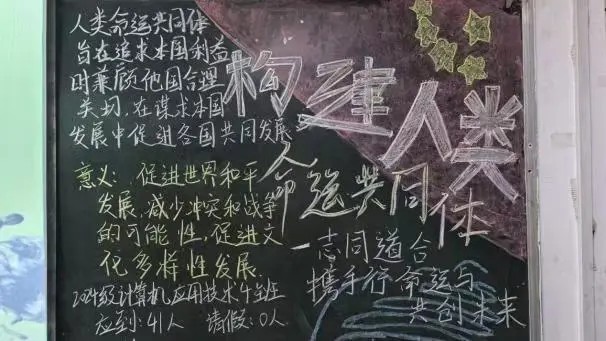 人类命运共同体
旨在追求本国利益
时兼顾他国合理
关切,在谋求本国
发展中促进各国共同发展
意义: 促进世界和平
发展,减少冲突和战争
的可能性,促进文
化多样性发展.
2024级计算机应用技术4全班
应到:41人 请假:0人
构建人类
命运共同体
志同道合
携手行命运与
共创未来